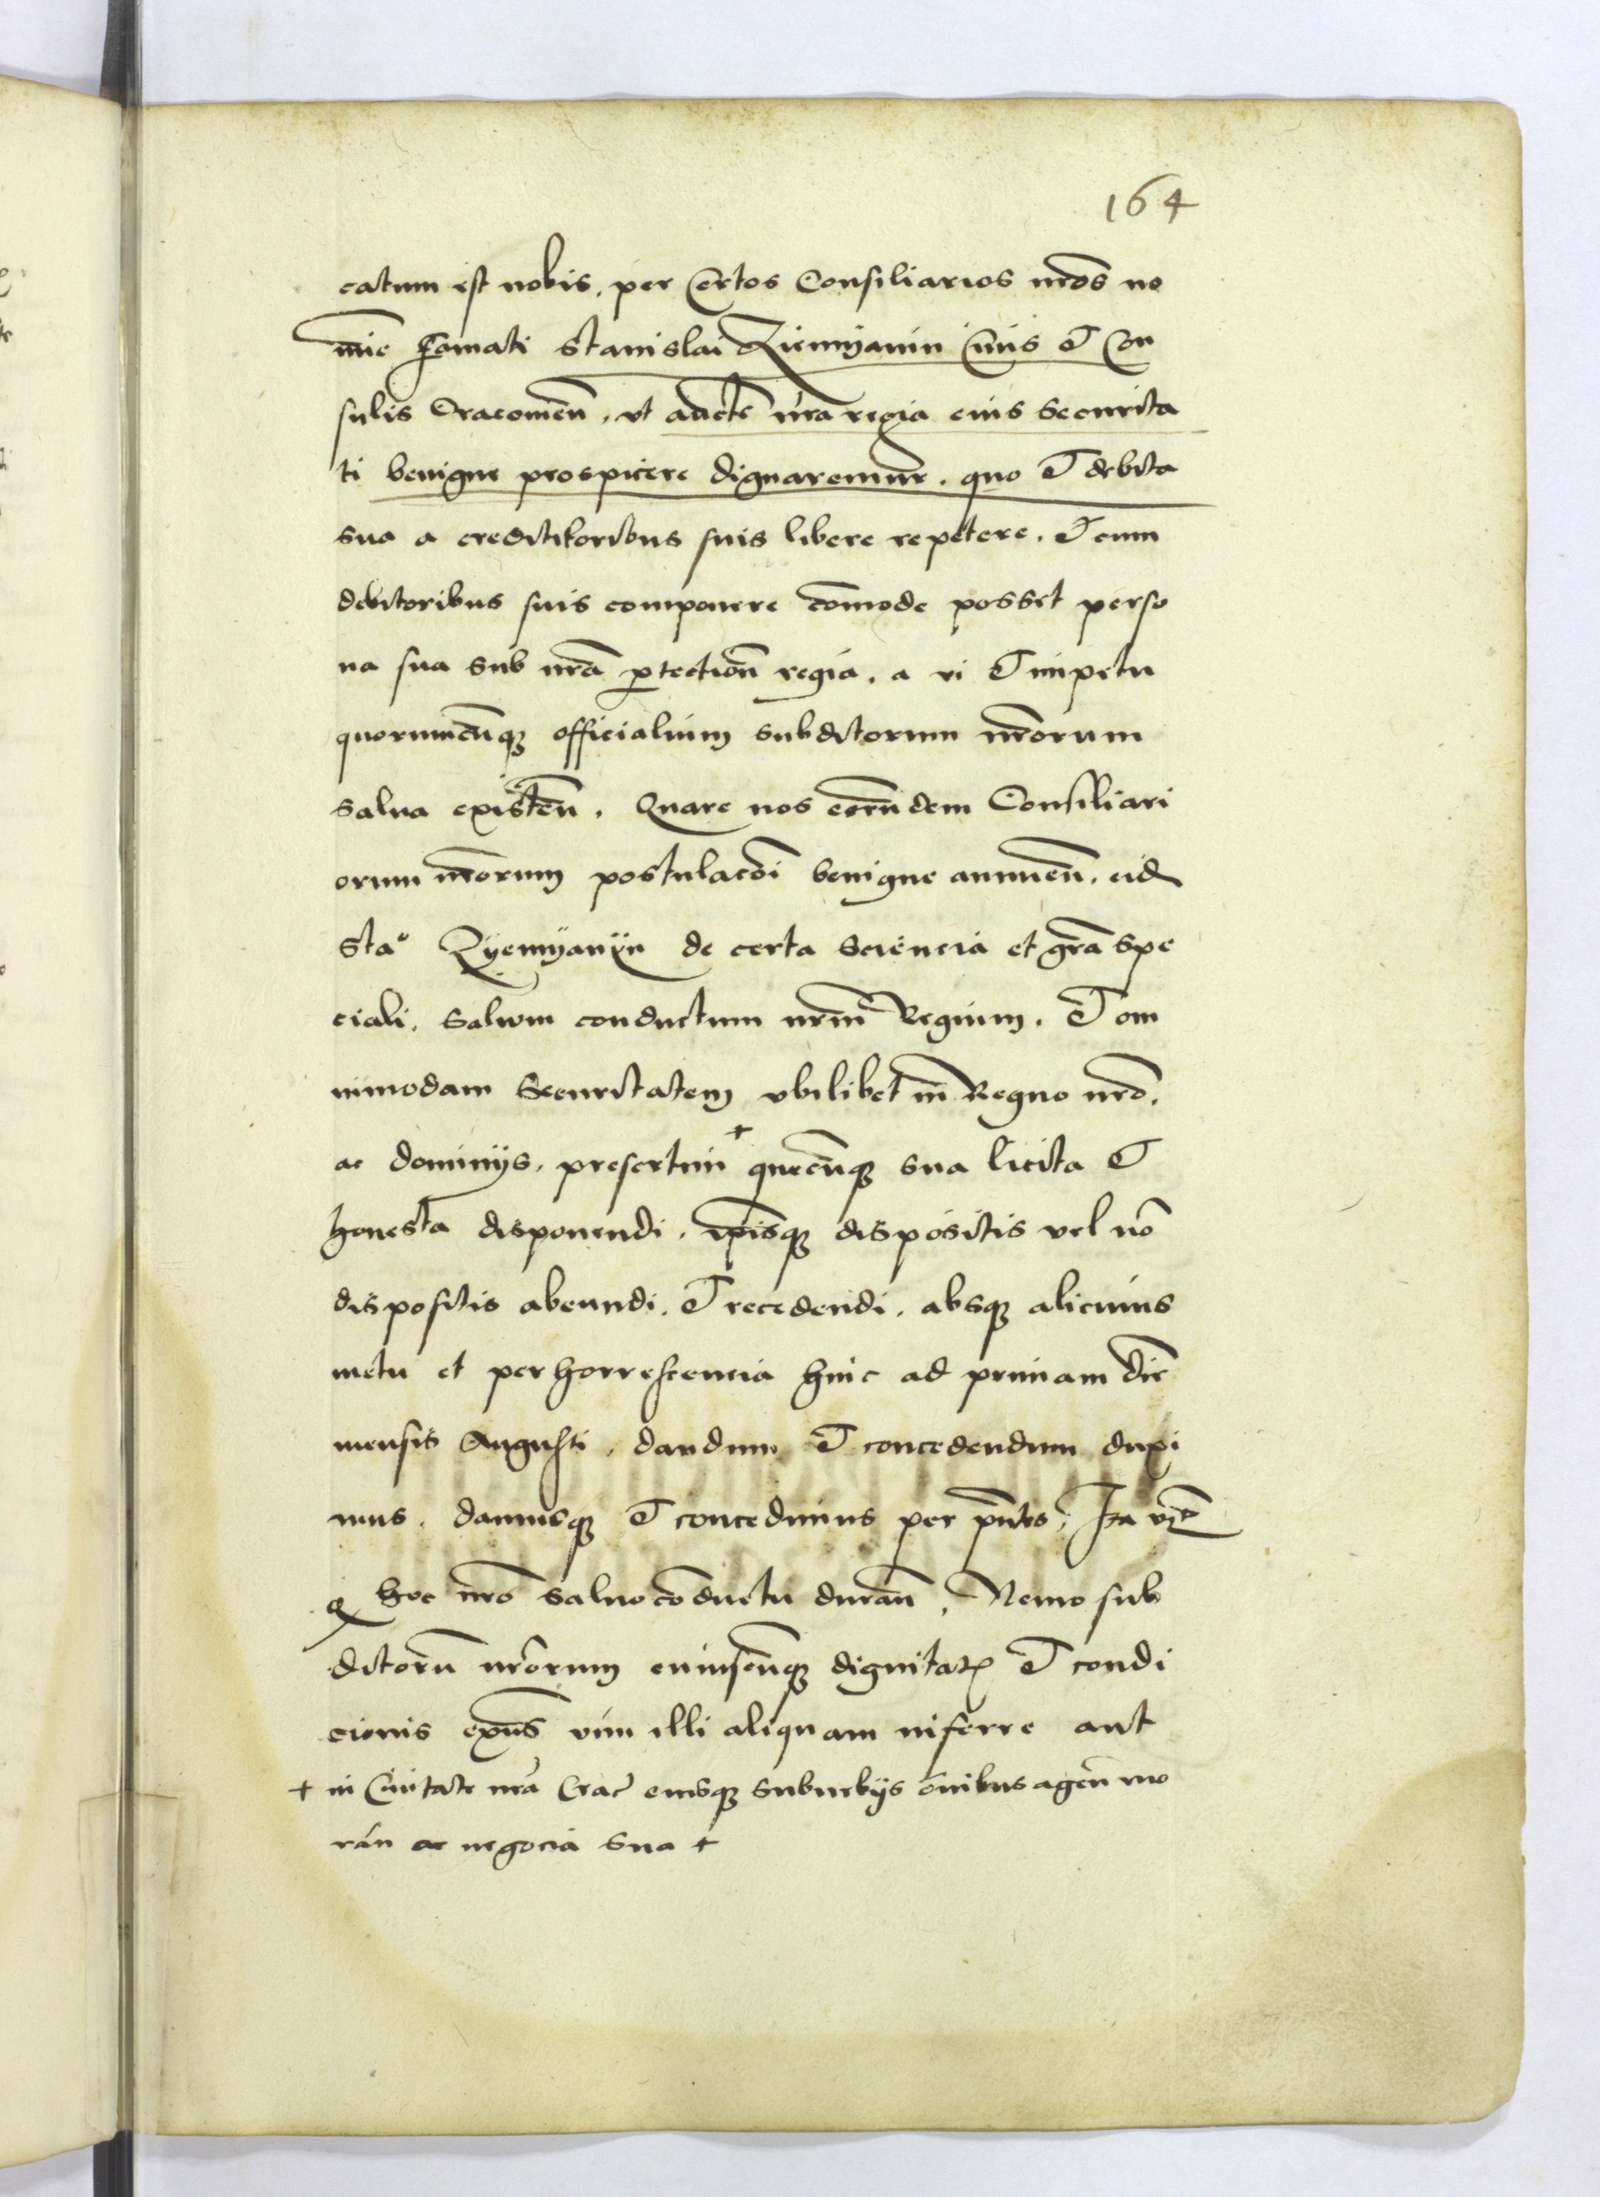 164
catum est nobis, per certos Consiliarios nr̃os no
mĩe Famati Stanislai Ziemyanin Civis et Con
sulis Cracouieñ, vt auctẽ nr̃a regia eius Securita
ti benigne prospicere dignaremur. quo et debita
sua a creditoribus suis libere repetere. et cum
debitoribus suis componere cõmode posset perso
na sua sub nr̃a ꝓtectioñ regia. a vi et impetu
quorumcũqȝ officialium subditorum nr̃orum
salua existeñ. Quare nos eorũdem Consiliari
orum nr̃orum postulacõi benigne annueñ. eid
Sta° Zyemyanyn de certa sciencia et gr̃a spe
ciali. Saluum conductum nr̃m Regium. et om
nimodam Securitatem vbilibet in Regno nr̃o,
ac dominijs. presertim + quecũqȝ sua licita et
honesta disponendi. ip̃isqȝ dispositis vel nõ
dispositis abeundi. et recedendi. absqȝ alicuius
metu et perhorrescencia hinc ad primam diẽ
mensis Augusti, dandum et concedendum duxi
mus. damusqȝ et concedimus per p̃ntes, Ita vt
q hoc nr̃o saluo cõductu durañ, Nemo sub
ditorũ nr̃orum cuiuscũqȝ dignitatꝭ et condi
cionis exñs vim illi aliquam inferre aut
+ in Ciuitate nr̃a Crac̃ eiusqȝ suburbijs õnibus ageñ mo
rañ ac negocia sua +